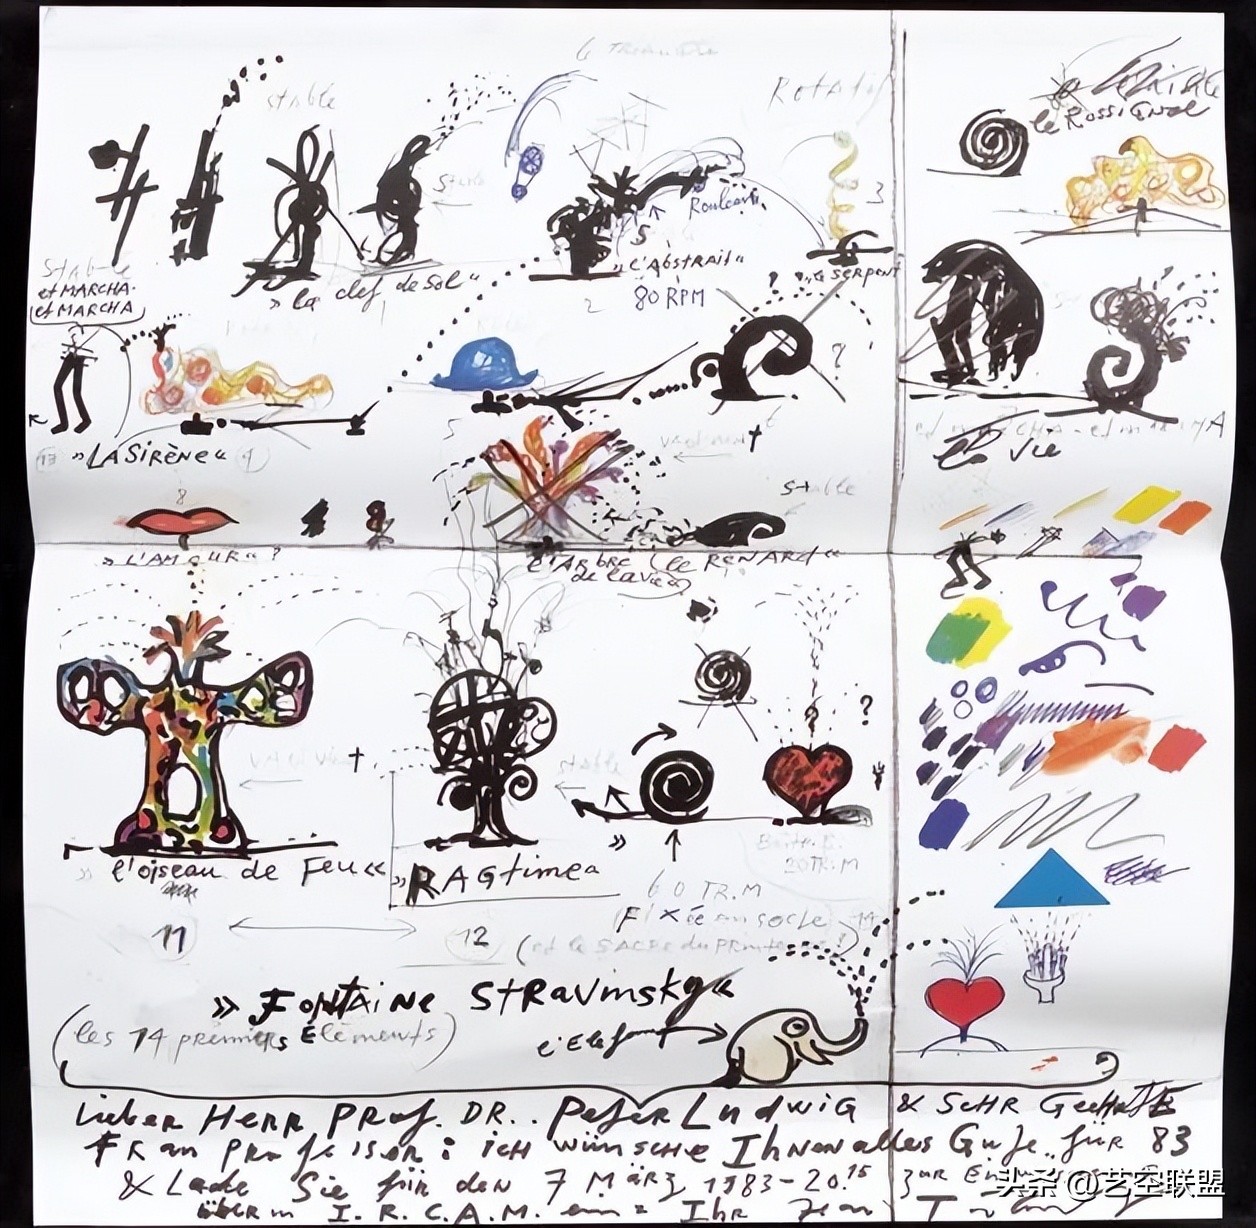 stable
Rotatif
le ROSSIGNOL
Stable
Rouleau
3
5
»L'ABSTRAIT«
80 RPM
»La clef de sol«
1
2
»Le SERPENT
Stable
et MARCHA-
et MARCHA
?
5
6
»LA SIRÈNE«
La Vie
stable
8
»L'AMOUR« ?
L'ARBRE
de la vie
»le RENARD«
?
stable
»l'oiseau de Feu«
»RAGtime«
20 TR.M
60 TR.M
FIXée au socle
11
12
(et le SACRE du PRINTEMPS?)
14
»FONTAINE StRaVinsky«
(les 14 premiers Éléments)
l'Elefant
Lieber HERR PROF. DR.. PeteR LudwiG & SeHR GeeHRTE
FRau PRofessor: icH wünsche IHnen alles Gute für 83
& Lade Sie für den 7 MäRz 1983-20.15 zur
über in I.R.C.A.M. ein = IHR Jean T
头条 @艺空联盟